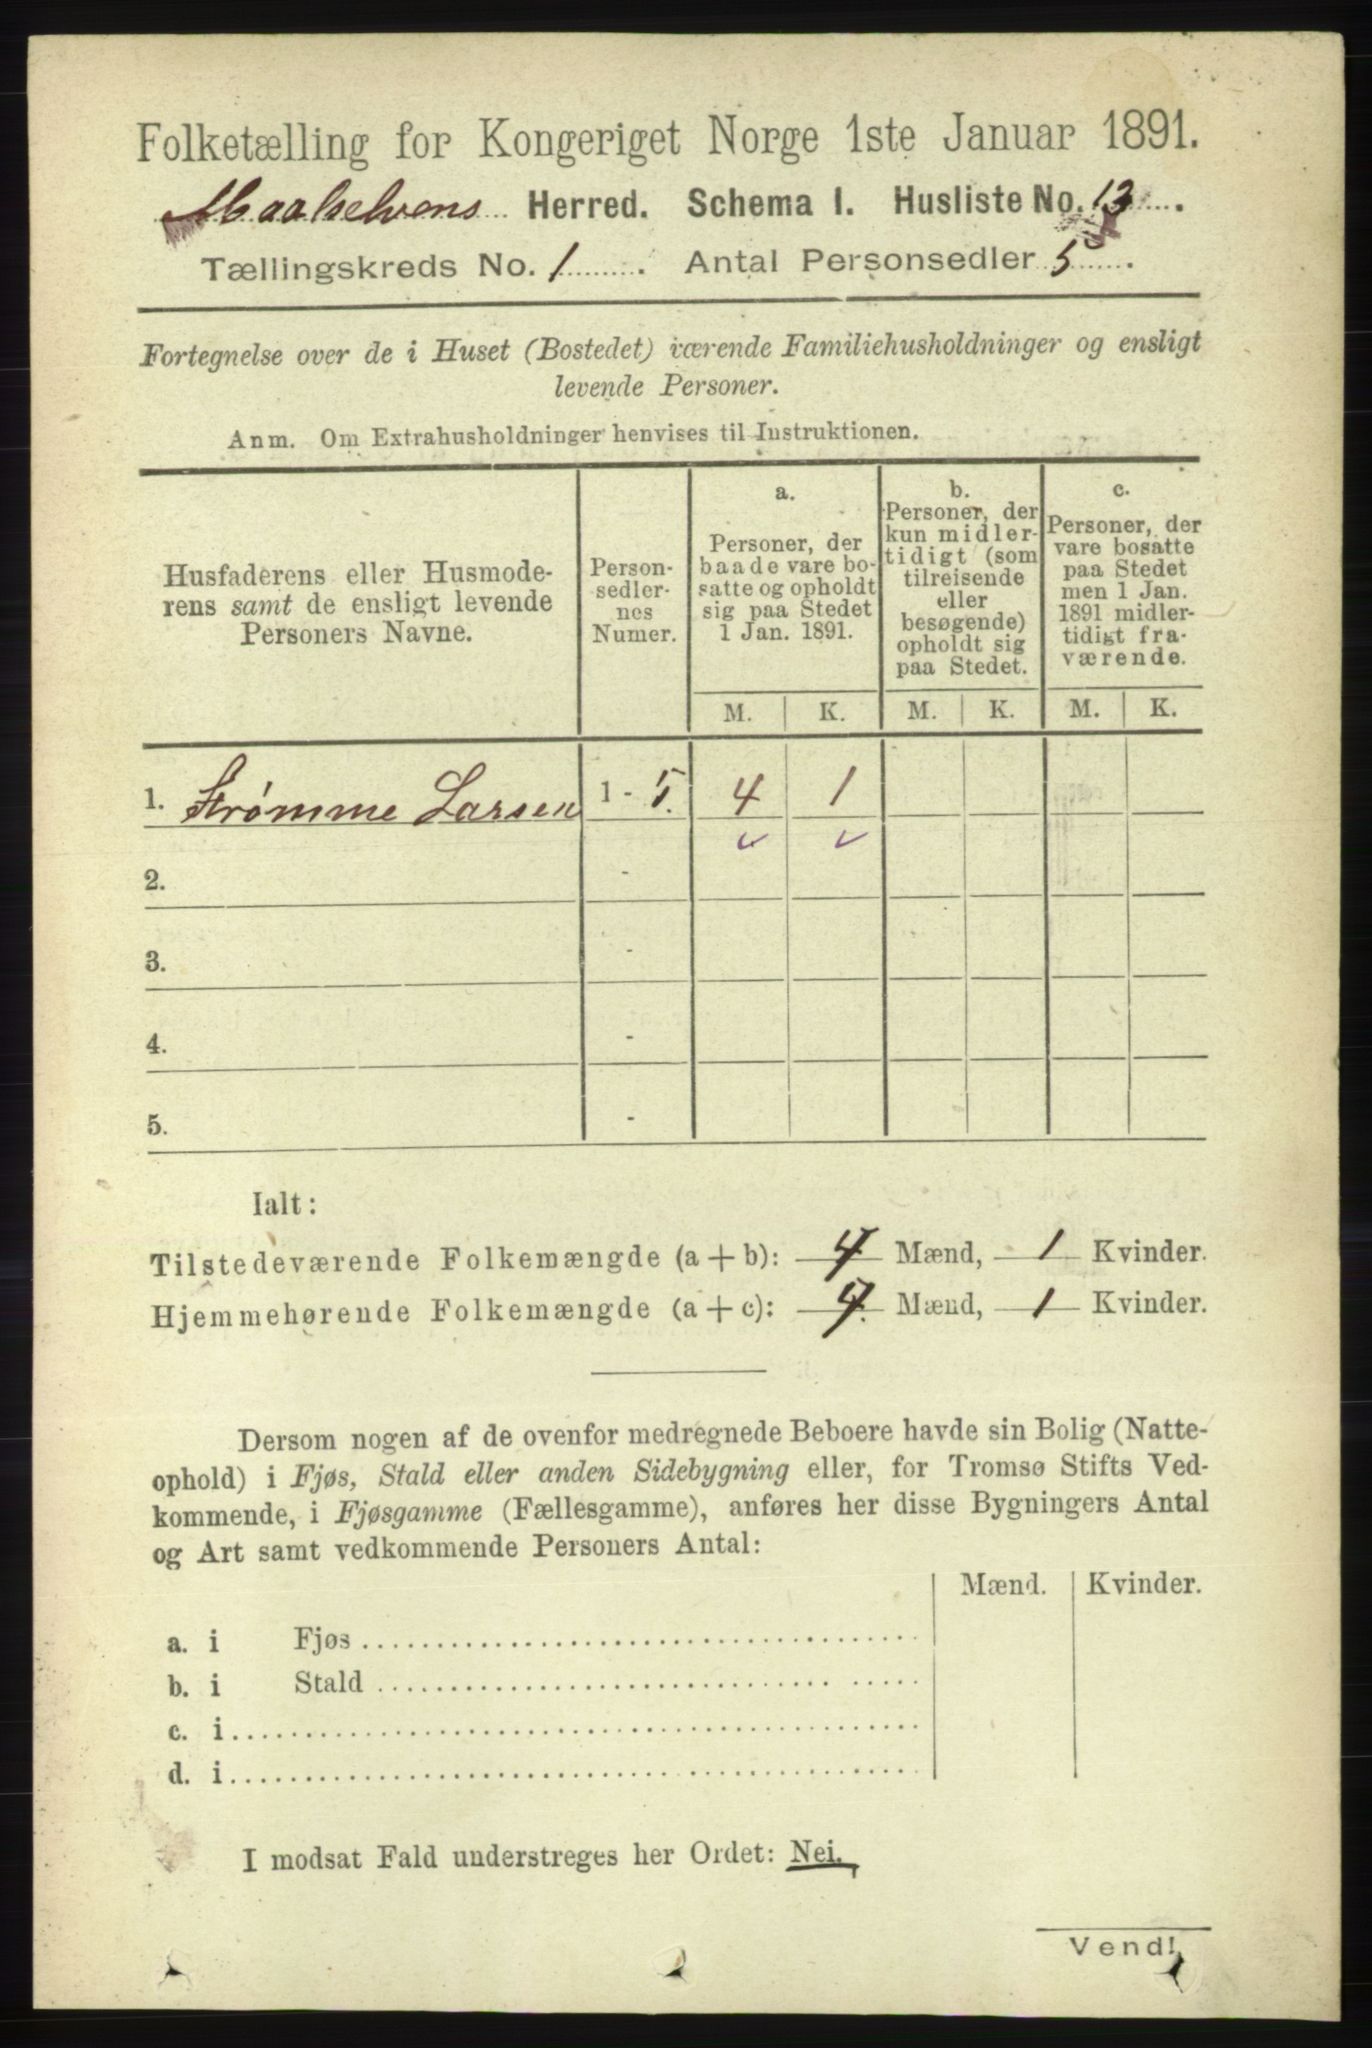 Folketælling for Kongeriget Norge 1ste Januar 1891.
Maalselvens Herred. Schema I. Husliste No. 13.
Tællingskreds No. 1. Antal Personsedler 5.
Fortegnelse over de i Huset (Bostedet) værende Familiehusholdninger og ensligt
levende Personer.
Anm. Om Extrahusholdninger henvises til Instruktionen.
Husfaderens eller Husmode-
rens samt de ensligt levende
Personers Navne.
Person-
sedler-
nes
Numer.
a.
Personer, der
baade vare bo-
satte og opholdt
sig paa Stedet
1 Jan. 1891.
b.
Personer, der
kun midler-
tidigt (som
tilreisende
eller
besøgende)
opholdt sig
paa Stedet.
c.
Personer, der
vare bosatte
paa Stedet
men 1 Jan.
1891 midler-
tidigt fra-
værende.
M. K. M. K. M. K.
1. Strømme Larsen 1 - 5. 4 1
2. -
3. -
4. -
5. -
Ialt:
Tilstedeværende Folkemængde (a + b): 4 Mænd, 1 Kvinder.
Hjemmehørende Folkemængde (a + c): 4. Mænd, 1 Kvinder.
Dersom nogen af de ovenfor medregnede Beboere havde sin Bolig (Natte-
ophold) i Fjøs, Stald eller anden Sidebygning eller, for Tromsø Stifts Ved-
kommende, i Fjøsgamme (Fællesgamme), anføres her disse Bygningers Antal
og Art samt vedkommende Personers Antal:
Mænd. Kvinder.
a. i Fjøs
b. i Stald
c. i
d. i
I modsat Fald understreges her Ordet: Nei.
Vend!